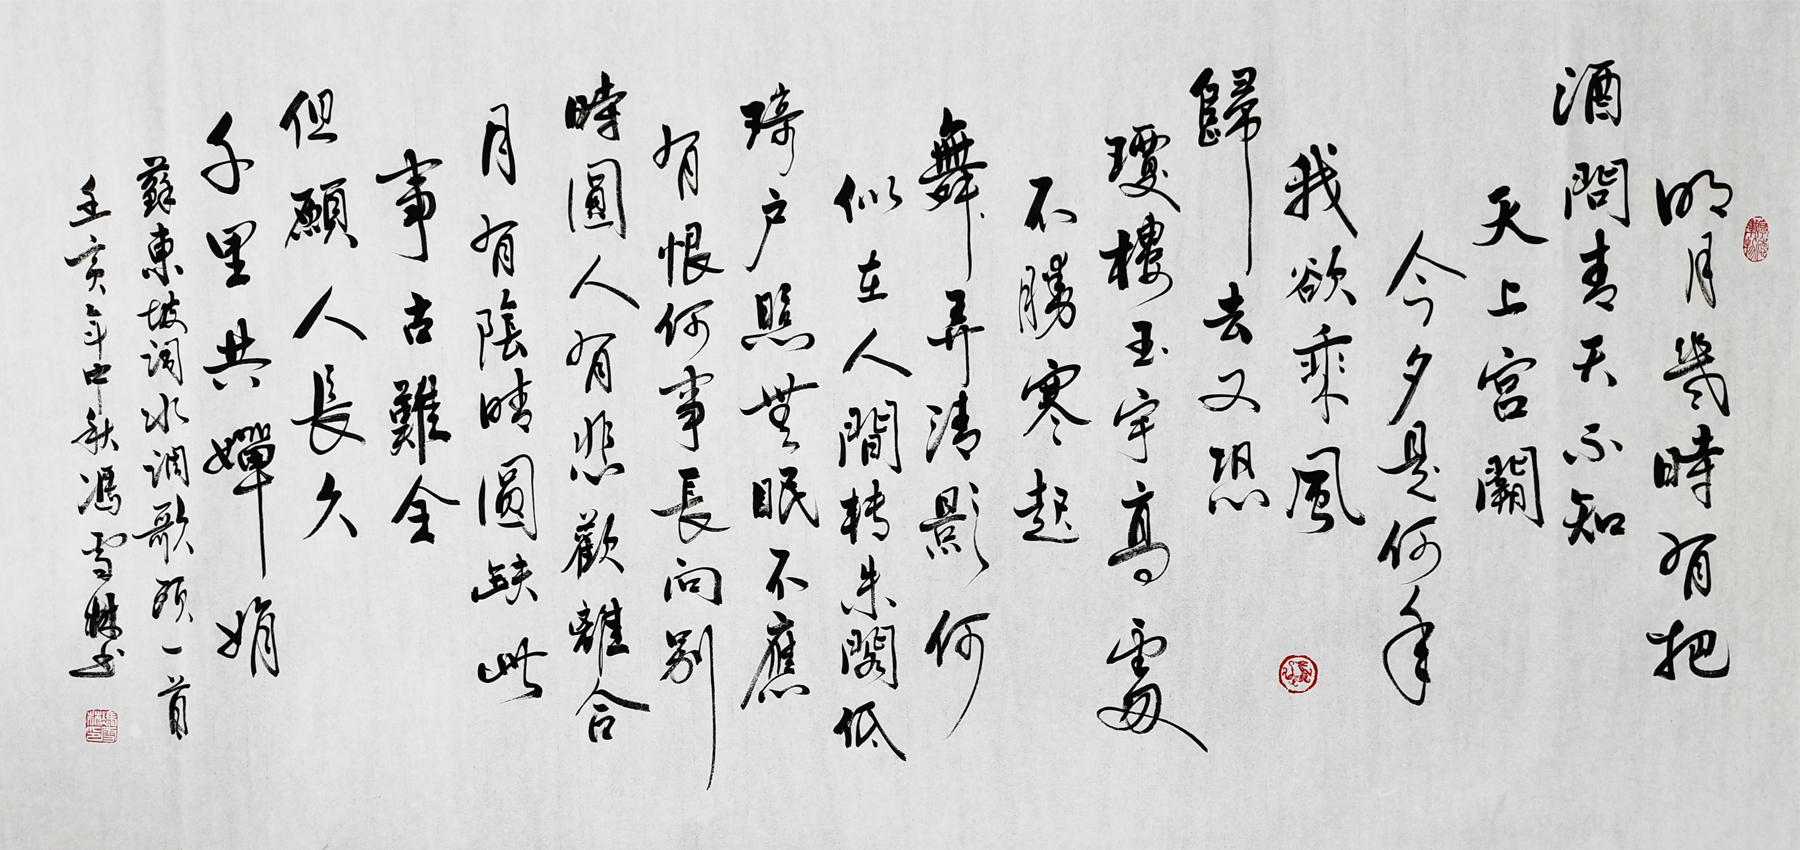 明月幾時有把
酒問青天不知
天上宮闕
今夕是何年
我欲乘風
歸去又恐
瓊樓玉宇高處
不勝寒起
舞弄清影何
似在人間轉朱閣低
琦户照無眠不應
有恨何事長向别
時圓人有悲歡離合
月有陰晴圓缺此
事古難全
但願人長久
千里共嬋娟
蘇東坡詞水調歌頭一首
亥年中秋馮雪林书